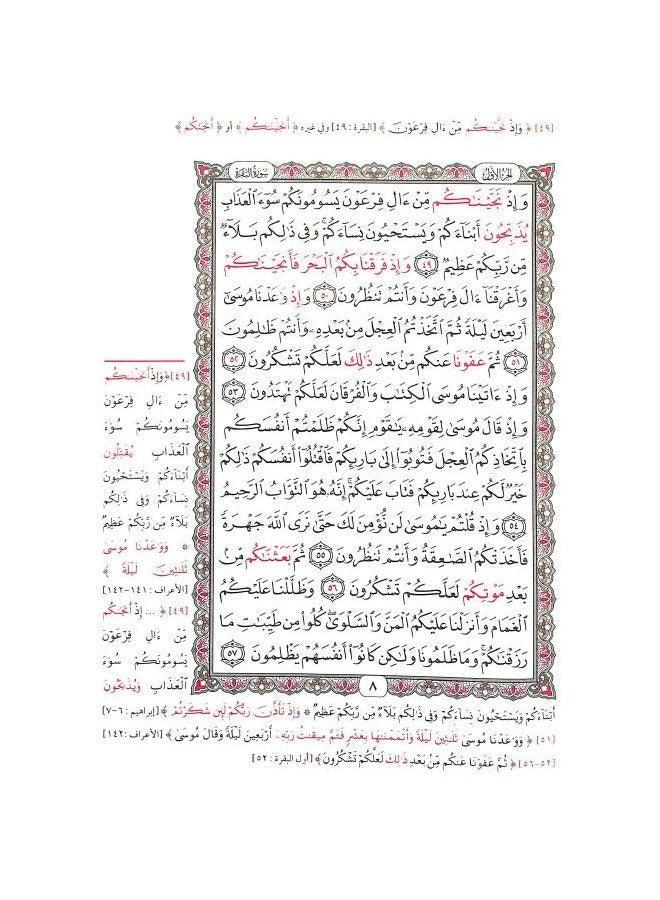 [٤٩] ﴿ وَإِذْ نَجَّيْنَٰكُم مِّنْ ءَالِ فِرْعَوْنَ ﴾ [البقرة : ٤٩] وفي غيره ﴿ أَنجَيْنَٰكُم ﴾ أو ﴿ أَنجَىٰكُم ﴾
الجزء الأول
سورة البقرة
وَإِذْ نَجَّيْنَٰكُم مِّنْ ءَالِ فِرْعَوْنَ يَسُومُونَكُمْ سُوٓءَ ٱلْعَذَابِ
يُذَبِّحُونَ أَبْنَآءَكُمْ وَيَسْتَحْيُونَ نِسَآءَكُمْ ۚ وَفِى ذَٰلِكُم بَلَآءٌ
مِّن رَّبِّكُمْ عَظِيمٌ ٤٩ وَإِذْ فَرَقْنَا بِكُمُ ٱلْبَحْرَ فَأَنجَيْنَٰكُمْ
وَأَغْرَقْنَآ ءَالَ فِرْعَوْنَ وَأَنتُمْ تَنظُرُونَ ٥٠ وَإِذْ وَٰعَدْنَا مُوسَىٰٓ
أَرْبَعِينَ لَيْلَةً ثُمَّ ٱتَّخَذْتُمُ ٱلْعِجْلَ مِنۢ بَعْدِهِۦ وَأَنتُمْ ظَٰلِمُونَ
٥١ ثُمَّ عَفَوْنَا عَنكُم مِّنۢ بَعْدِ ذَٰلِكَ لَعَلَّكُمْ تَشْكُرُونَ ٥٢
وَإِذْ ءَاتَيْنَا مُوسَى ٱلْكِتَٰبَ وَٱلْفُرْقَانَ لَعَلَّكُمْ تَهْتَدُونَ ٥٣
وَإِذْ قَالَ مُوسَىٰ لِقَوْمِهِۦ يَٰقَوْمِ إِنَّكُمْ ظَلَمْتُمْ أَنفُسَكُم
بِٱتِّخَاذِكُمُ ٱلْعِجْلَ فَتُوبُوٓا۟ إِلَىٰ بَارِئِكُمْ فَٱقْتُلُوٓا۟ أَنفُسَكُمْ ذَٰلِكُمْ
خَيْرٌ لَّكُمْ عِندَ بَارِئِكُمْ فَتَابَ عَلَيْكُمْ ۚ إِنَّهُۥ هُوَ ٱلتَّوَّابُ ٱلرَّحِيمُ
٥٤ وَإِذْ قُلْتُمْ يَٰمُوسَىٰ لَن نُّؤْمِنَ لَكَ حَتَّىٰ نَرَى ٱللَّهَ جَهْرَةً
فَأَخَذَتْكُمُ ٱلصَّٰعِقَةُ وَأَنتُمْ تَنظُرُونَ ٥٥ ثُمَّ بَعَثْنَٰكُم مِّنۢ
بَعْدِ مَوْتِكُمْ لَعَلَّكُمْ تَشْكُرُونَ ٥٦ وَظَلَّلْنَا عَلَيْكُمُ
ٱلْغَمَامَ وَأَنزَلْنَا عَلَيْكُمُ ٱلْمَنَّ وَٱلسَّلْوَىٰ ۖ كُلُوا۟ مِن طَيِّبَٰتِ مَا
رَزَقْنَٰكُمْ ۖ وَمَا ظَلَمُونَا وَلَٰكِن كَانُوٓا۟ أَنفُسَهُمْ يَظْلِمُونَ ٥٧
٨
[٤٩] ﴿وَإِذْ أَنجَيْنَٰكُم
مِّنْ ءَالِ فِرْعَوْنَ
يَسُومُونَكُمْ سُوٓءَ
ٱلْعَذَابِ يُقَتِّلُونَ
أَبْنَآءَكُمْ وَيَسْتَحْيُونَ
نِسَآءَكُمْ وَفِى ذَٰلِكُم
بَلَآءٌ مِّن رَّبِّكُمْ عَظِيمٌ
* وَوَٰعَدْنَا مُوسَىٰ
ثَلَٰثِينَ لَيْلَةً ﴾
[الأعراف : ١٤١-١٤٢]
[٤٩] ﴿ ... إِذْ أَنجَىٰكُم
مِّنْ ءَالِ فِرْعَوْنَ
يَسُومُونَكُمْ سُوٓءَ
ٱلْعَذَابِ وَيُذَبِّحُونَ
أَبْنَآءَكُمْ وَيَسْتَحْيُونَ نِسَآءَكُمْ وَفِى ذَٰلِكُم بَلَآءٌ مِّن رَّبِّكُمْ عَظِيمٌ * وَإِذْ تَأَذَّنَ رَبُّكُمْ لَئِن شَكَرْتُمْ ﴾ [إبراهيم : ٦-٧]
[٥١] ﴿ وَوَٰعَدْنَا مُوسَىٰ ثَلَٰثِينَ لَيْلَةً وَأَتْمَمْنَٰهَا بِعَشْرٍ فَتَمَّ مِيقَٰتُ رَبِّهِۦٓ أَرْبَعِينَ لَيْلَةً وَقَالَ مُوسَىٰ ﴾ [الأعراف : ١٤٢]
[٥٢-٥٦] ﴿ ثُمَّ عَفَوْنَا عَنكُم مِّنۢ بَعْدِ ذَٰلِكَ لَعَلَّكُمْ تَشْكُرُونَ﴾ [أول البقرة : ٥٢]